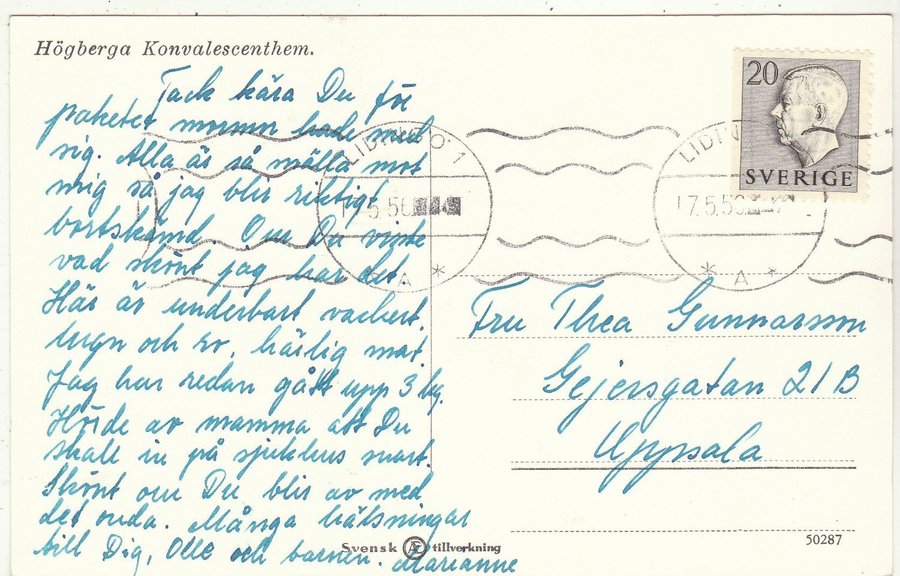 Högberga Konvalescenthem.
20
SVERIGE
LIDINGÖ 1
17.5.56
* A *
LIDINGÖ
17.5.56
* A *
Tack kära Du för
paketet mamma hade med
sig. Alla är så snälla mot
mig så jag blir riktigt
bortskämd. Om Du visste
vad skönt jag har det.
Här är underbart vackert,
lugn och ro, härlig mat.
Jag har redan gått upp 3 kg.
Hörde av mamma att Du
skall in på sjukhus snart.
Skönt om Du blir av med
det onda. Många hälsningar
till Dig, Olle och barnen. Marianne
Fru Thea Gunnarsson
Gejersgatan 21 B
Uppsala
Svensk Æ tillverkning
50287